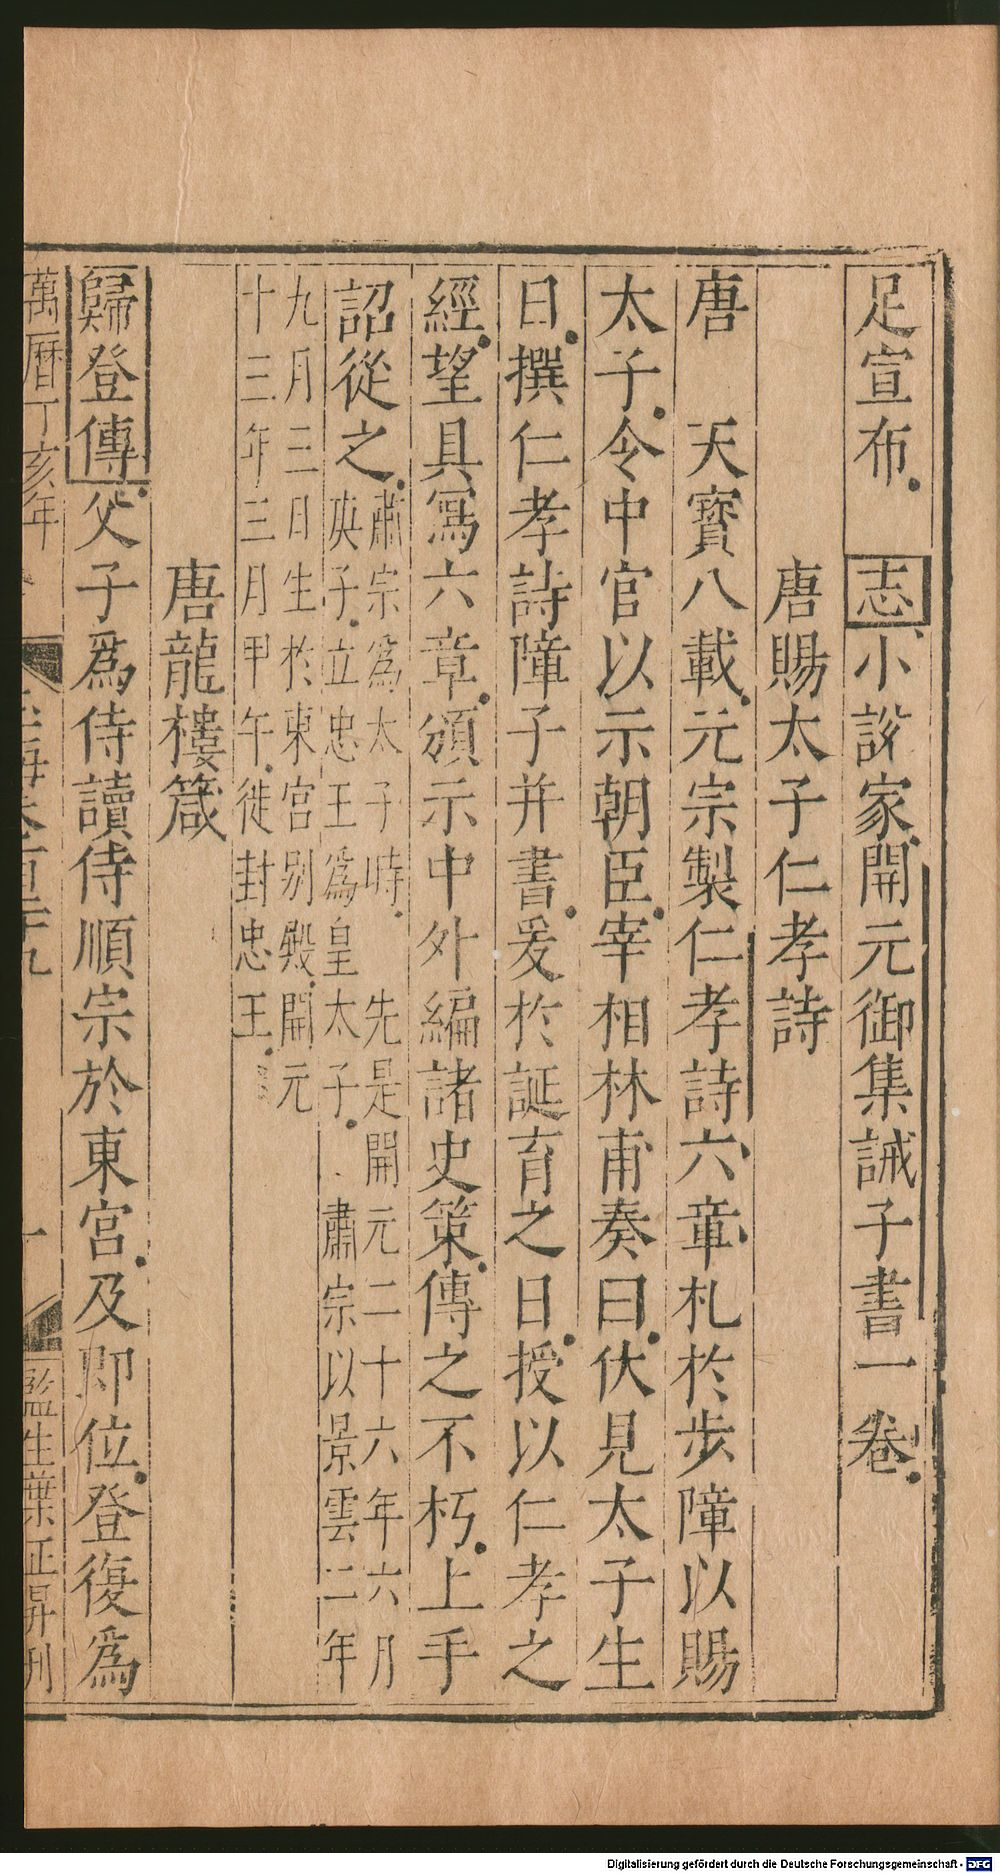 足宣布 志小說家開元御集誡子書一卷
唐賜太子仁孝詩
唐 天寶八載元宗製仁孝詩六章札於步障以賜
太子令中官以示朝臣宰相林甫奏曰伏見太子生
日撰仁孝詩障子并書爰於誕育之日授以仁孝之
經望具寫六章頒示中外編諸史策傳之不朽上手
詔從之肅宗為太子時先是開元二十六年六月
庚子立忠王為皇太子肅宗以景雲二年
九月三日生於東宮別殿開元
十三年三月甲午徙封忠王
唐龍樓箴
歸登傳父子爲侍讀侍順宗於東宮及即位登復爲
萬曆丁亥年
海卷百
監生葉正昇刊
Digitalisierung gefördert durch die Deutsche Forschungsgemeinschaft - DFG